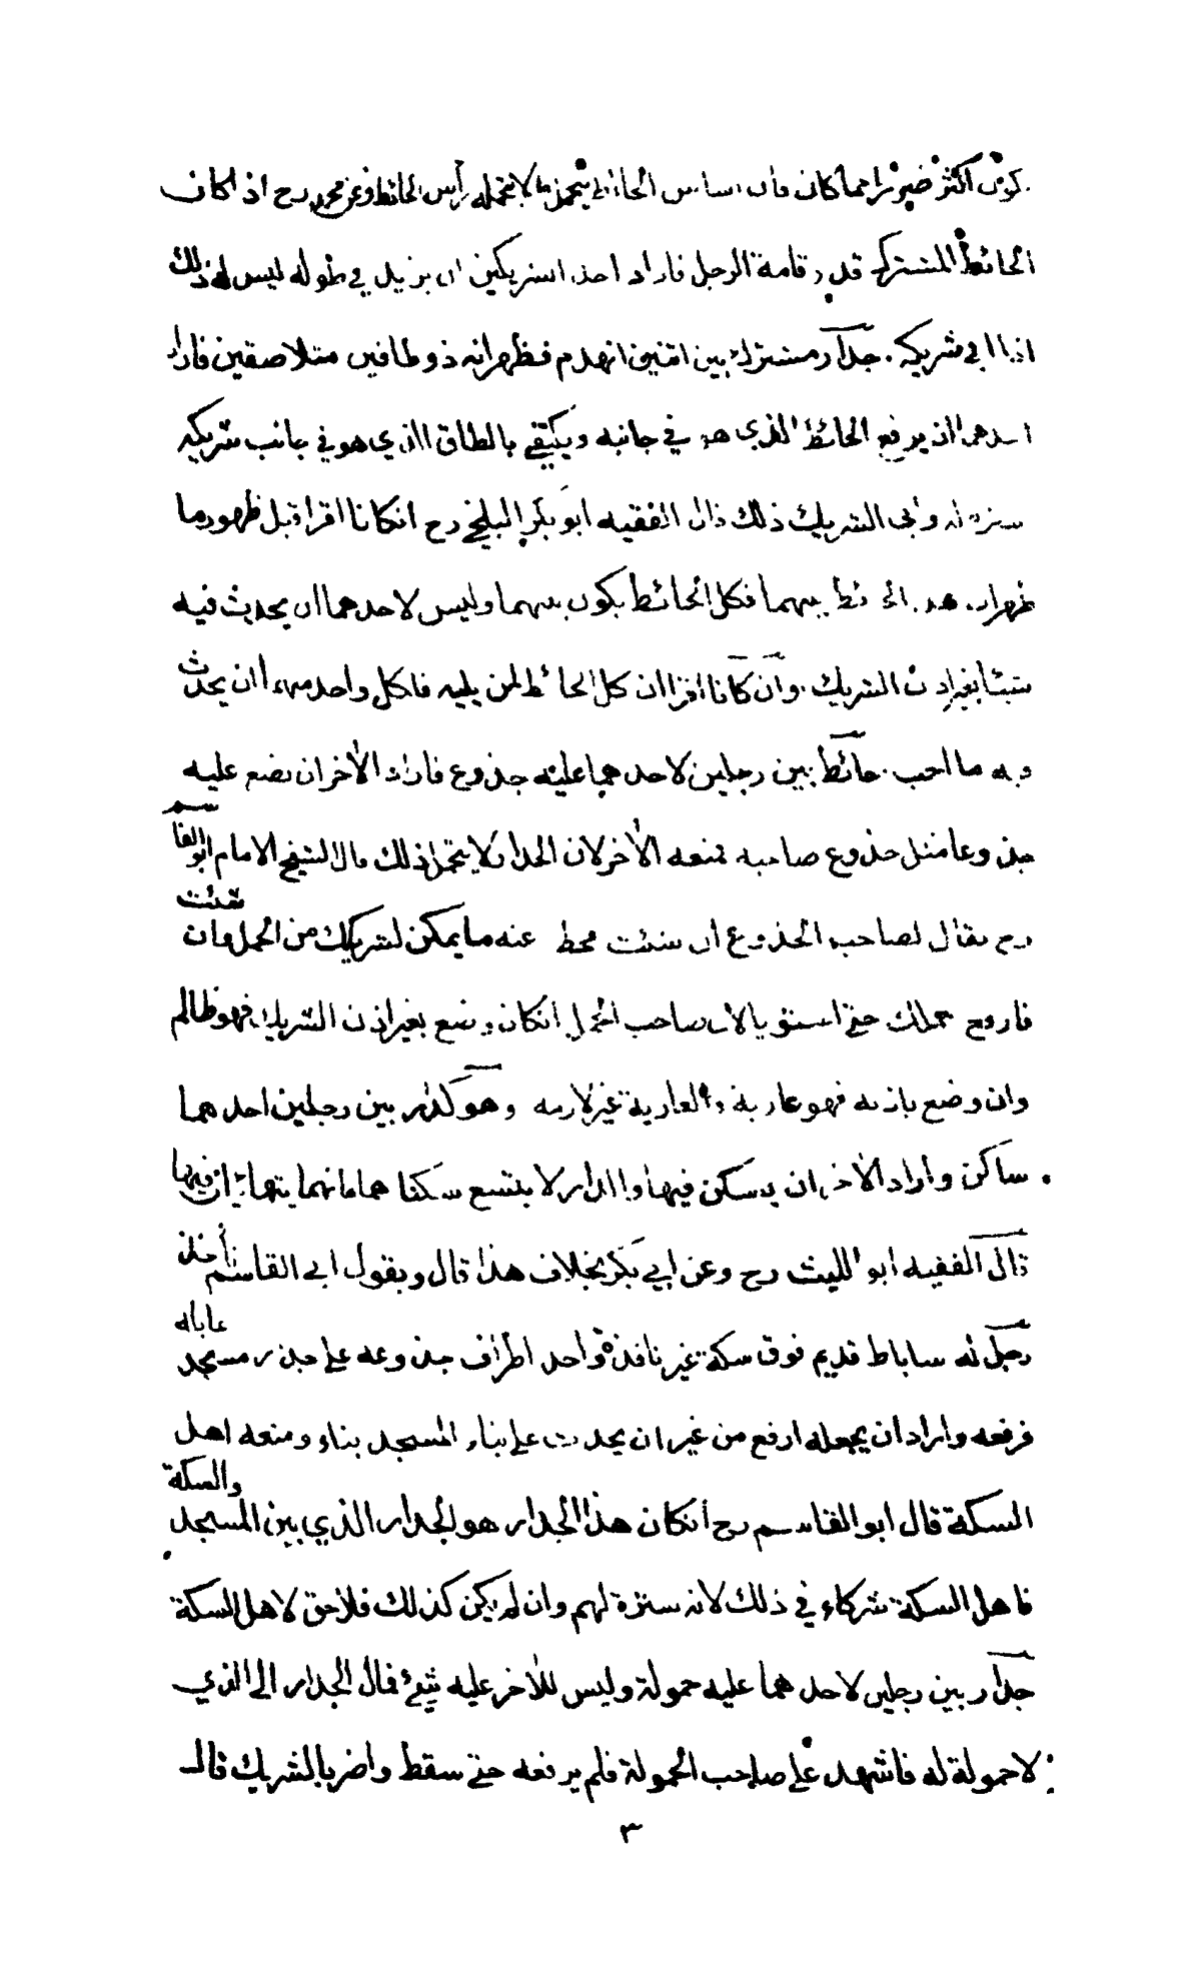 يكون اكثر ضررا مما كان فان اساس الحائط يتحمل ما لا يتحمله رأس الحائط وعن محمد رح اذا كان
الحائط المشترك قدر قامة الرجل فاراد احد الشريكين ان يزيد في طوله ليس له ذلك
اذا ابى شريكه . جدار مشترك بين اثنين انهدم فظهر انه ذو طاقين متلاصقين فاراد
احدهما ان يرفع الحائط الذي هو في جانبه ويكتفي بالطاق الذي هو في جانب شريكه
سترة له وابى الشريك ذلك قال الفقيه ابو بكر البلخي رح ان كانا اقرا قبل ظهور ما
ظهر ان هذا الحائط بينهما فكل الحائط يكون بينهما وليس لاحدهما ان يحدث فيه
شيئا بغير اذن الشريك وان كانا اقرا ان كل الحائط لمن يليه فلكل واحد منهما ان يحدث
فيه ما احب . حائط بين رجلين لاحدهما عليه جذوع فاراد الآخر ان يضع عليه
جذوعا مثل جذوع صاحبه فمنعه الآخر لان الجدار لا يتحمل ذلك قال الشيخ الامام ابو القاسم
رح يقال لصاحب الجذوع ان شئت فحط عنه ما يمكن لشريكك من الحمل وان شئت
فارفع حملك حتى تستويا لان صاحب الحمل ان كان وضع بغير اذن الشريك فهو ظالم
وان وضع باذنه فهو عارية والعارية غير لازمة وهو كدار بين رجلين احدهما
ساكن واراد الآخر ان يسكن فيها والدار لا يتسع سكناهما فانهما يتهايئان فيها
قال الفقيه ابو الليث رح وعن ابي بكر بخلاف هذا قال وبقول ابي القاسم نأخذ
رجل له ساباط قديم فوق سكة غير نافذة واحد اطراف جذوعه على جدار مسجد
فرفعه واراد ان يجعله ارفع من غير ان يحدث على بناء المسجد بناء ومنعه اهل
السكة قال ابو القاسم رح ان كان هذا الجدار هو الجدار الذي بين المسجد والسكة
فاهل السكة شركاء في ذلك لانه سترة لهم وان لم يكن كذلك فلا حق لاهل السكة
جدار بين رجلين لاحدهما عليه حمولة وليس للآخر عليه شيئ فمال الجدار الى الذي
لا حمولة له فاشهد على صاحب الحمولة فلم يرفعه حتى سقط واضر بالشريك قال
٣